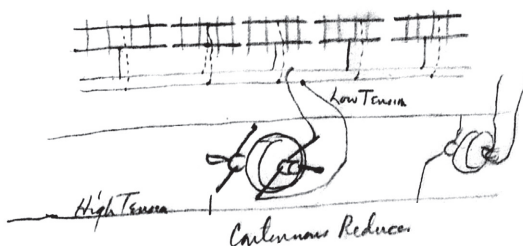 Low Tension
High Tension
Continuous Reducer